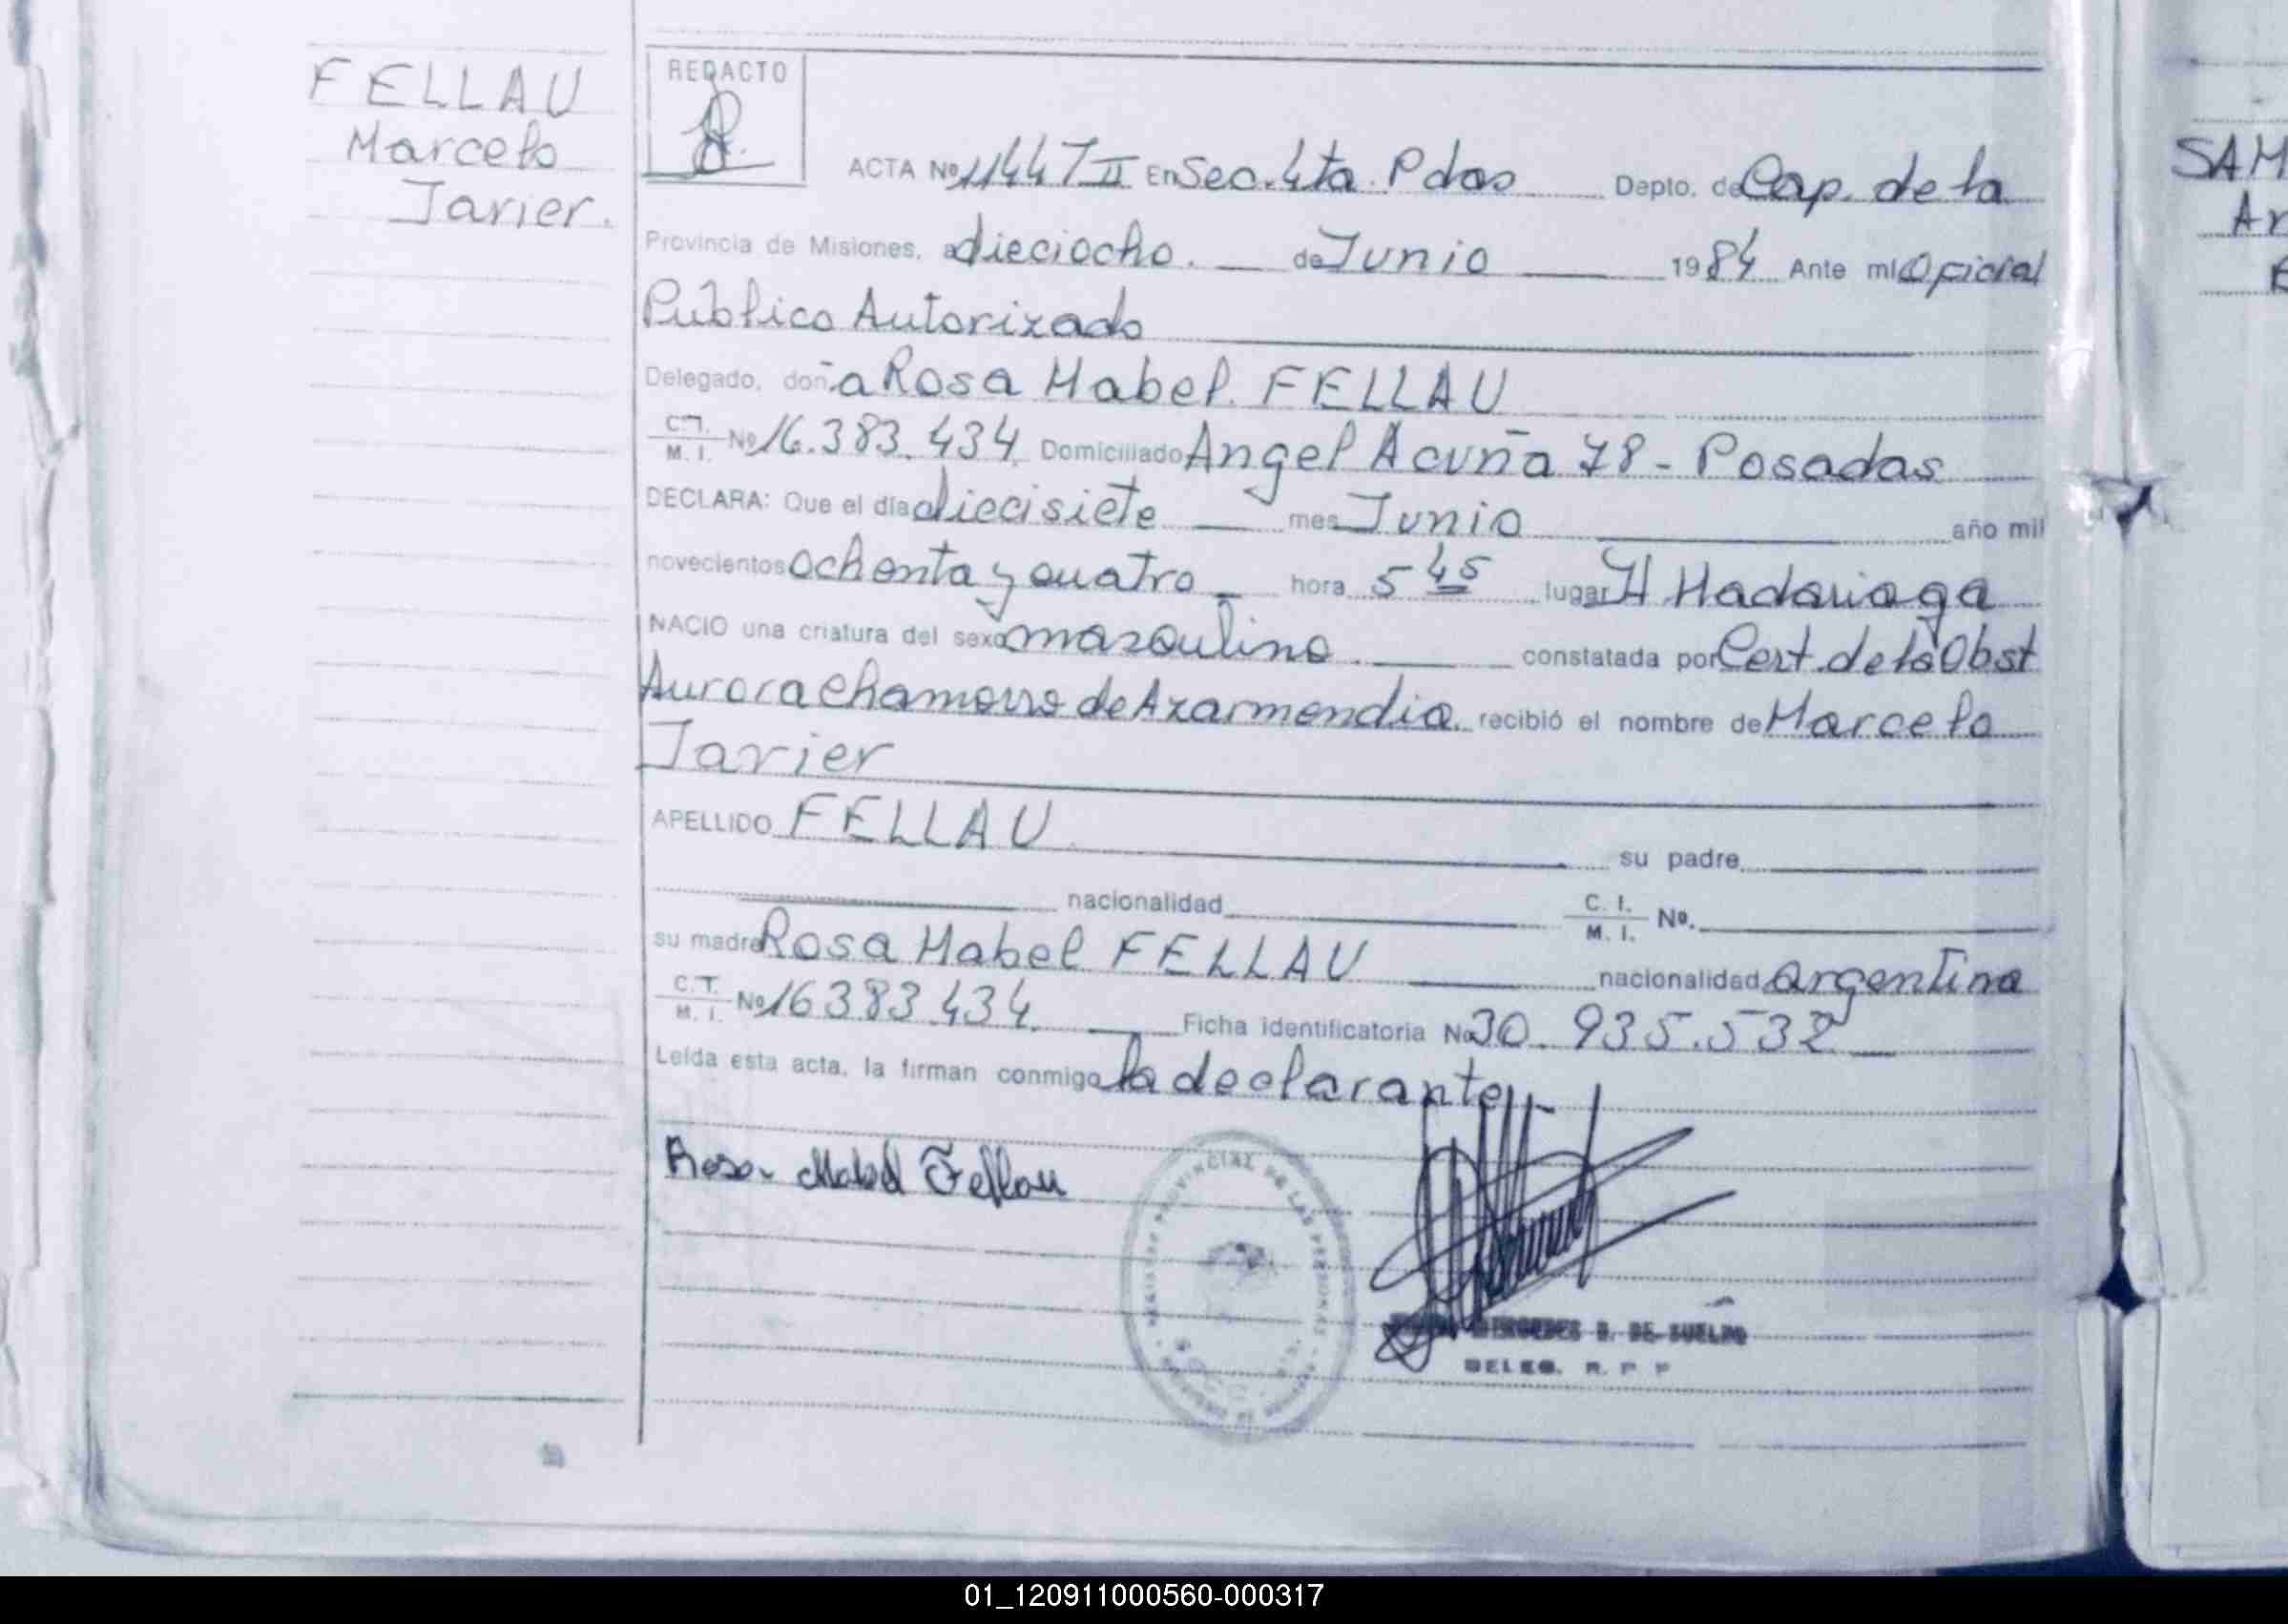 FELLAU
Marcelo
Javier.
REDACTO
ACTA Nº 1447 T II En Sec. 4ta. Pdas Depto. de Cap. de la
Provincia de Misiones, a dieciocho. de Junio 1984 Ante mi Oficial
Publico Autorizado
Delegado, doña Rosa Mabel. FELLAU
C.T. M. I. Nº 16.383.434 Domiciliado Angel Acuña 78 - Posadas
DECLARA: Que el día diecisiete mes Junio año mil
novecientos ochenta y cuatro hora 5 45 lugar H. Madariaga
NACIO una criatura del sexo masculino. constatada por Cert. de la Obst
Aurora Chamorro de Azarmendia. recibió el nombre de Marcelo
Javier
APELLIDO FELLAU su padre
nacionalidad C. I. M. I. Nº.
su madre Rosa Mabel FELLAU nacionalidad argentina
C.T. M. I. Nº 16383.434. Ficha identificatoria No 30.935.532
Leída esta acta, la firman conmigo la declarante.-
Rosa Mabel Fellau
PROVINCIAL DE LAS PERSONAS
MERCEDES B. DE SUELDO
DELEG. R. P P
SAM
Ar
01_120911000560-000317